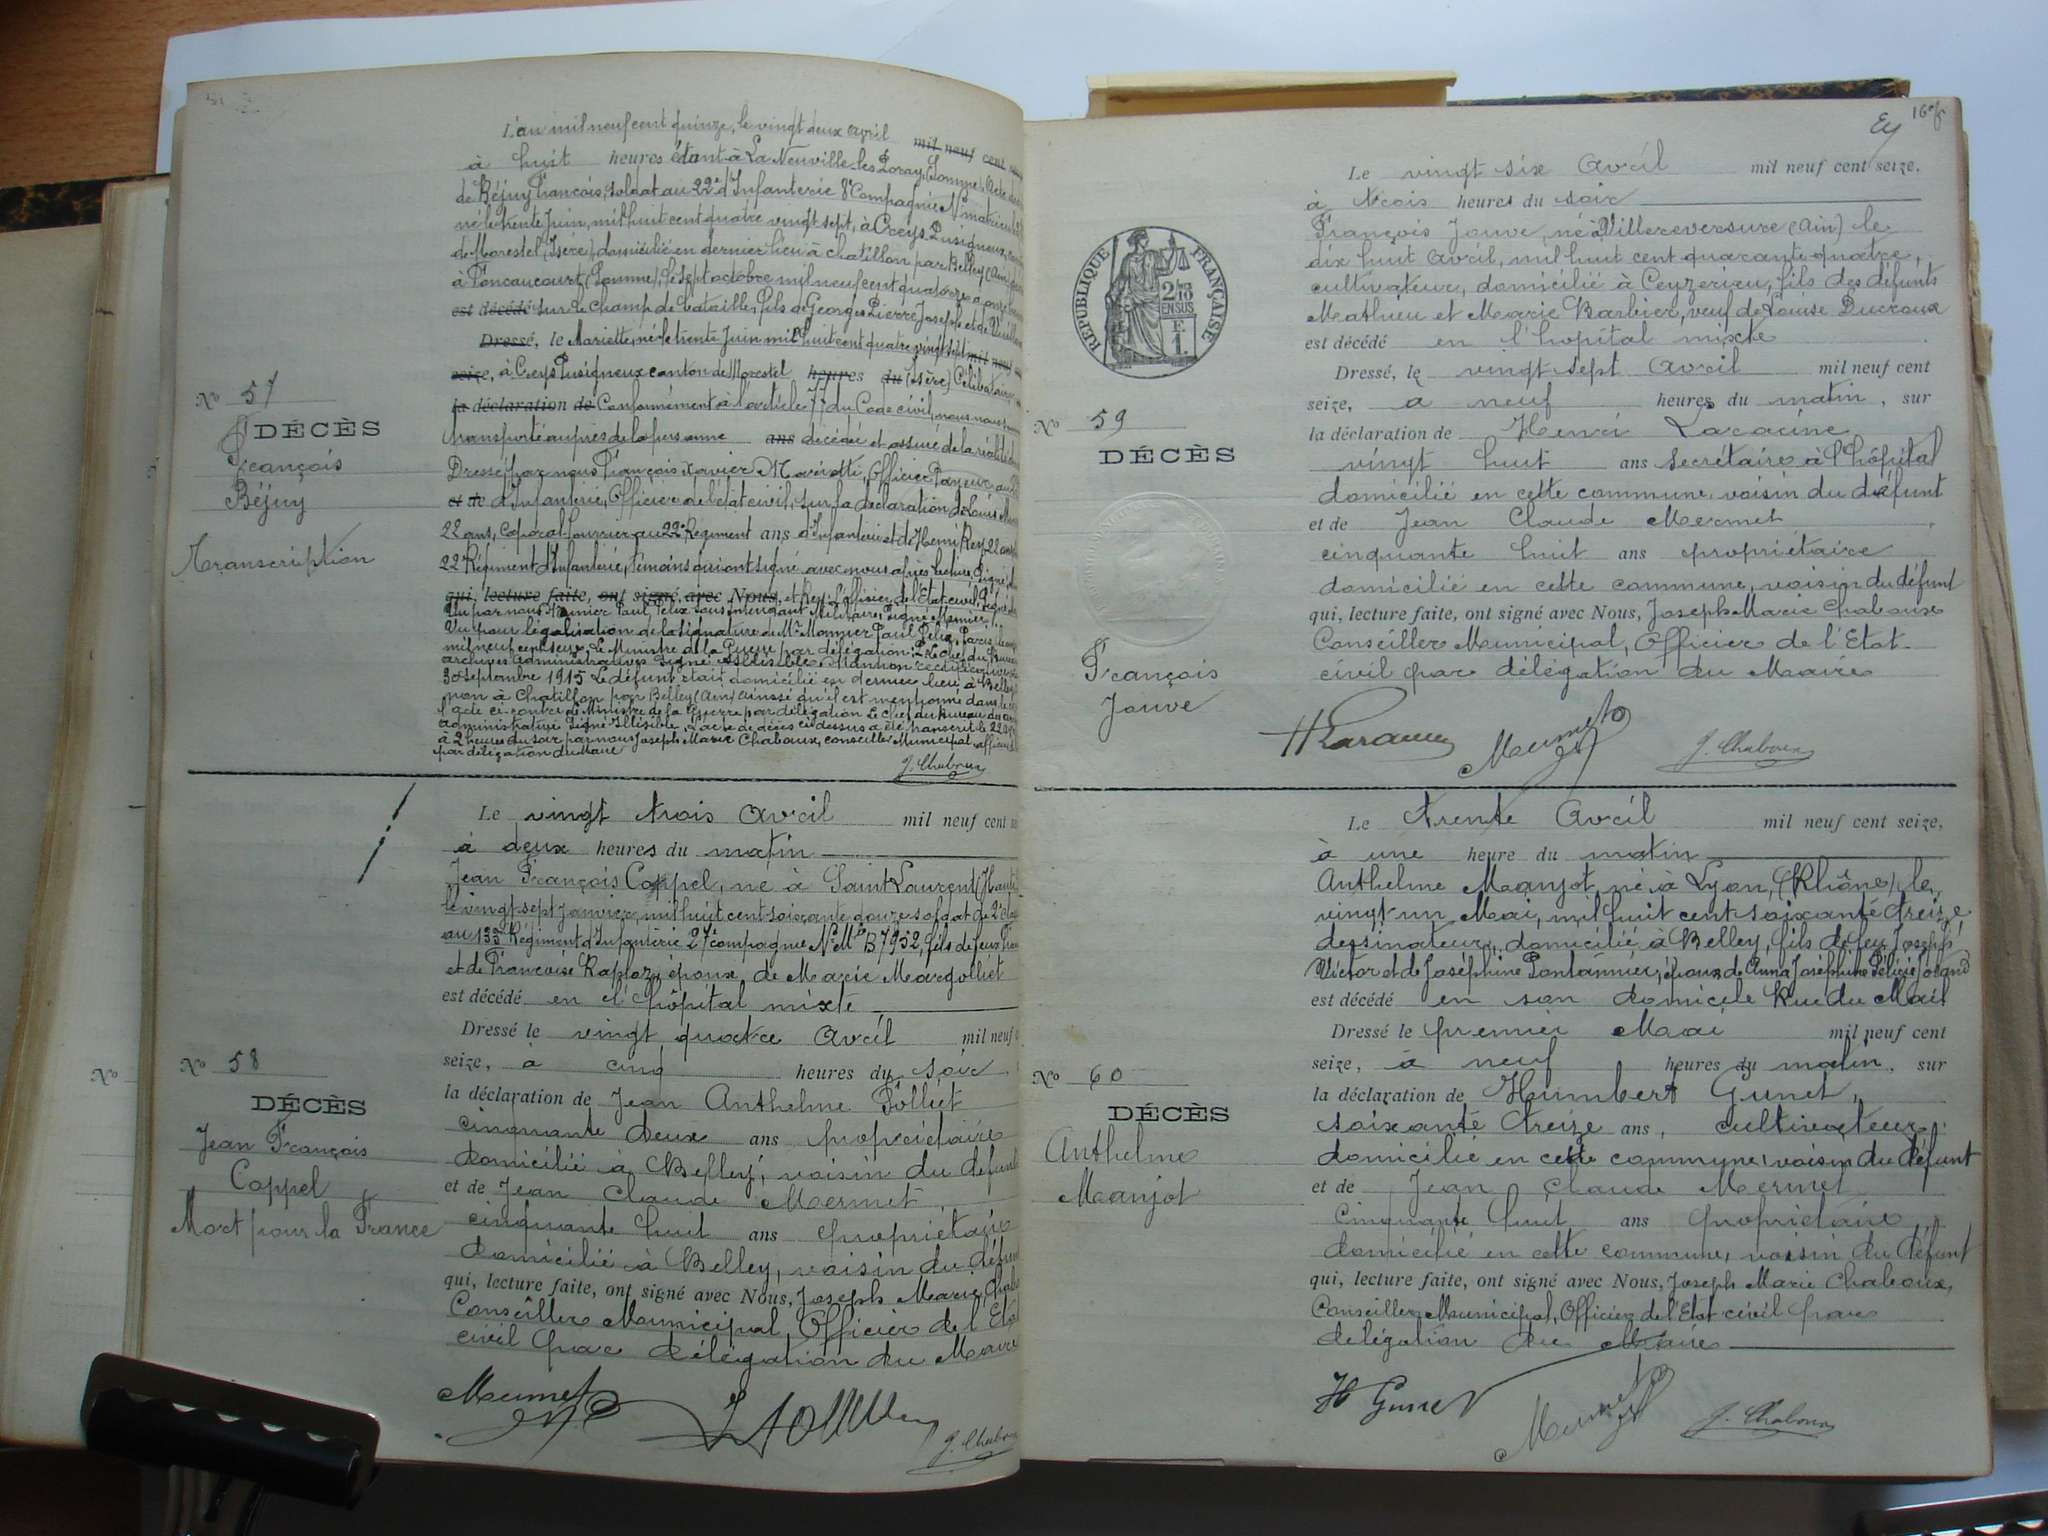 L'an mil neuf cent quinze, le vingt deux avril mil neuf cent
à huit heures étant à La Neuville-les-Loray (Somme), Acte de
de Béjuy François, soldat au 22e d'Infanterie 8e Compagnie No matricule
né le trente Juin, mil huit cent quatre vingt sept, à Creys Pusigneux,
de Morestel (Isère), domicilié en dernier lieu à Chatillon par Belley (Ain),
à Foncaucourt (Somme), le sept octobre mil neuf cent quatorze à onze heures
est décédé sur le champ de bataille, fils de Georges Pierre Joseph et de
Dressé, le Mariette, né le trente Juin mil huit cent quatre vingt sept mil neuf
seize, à Creys Pusigneux canton de Morestel heures du (Isère) Célibataire,
la déclaration de Conformément à l'article 77 du Code civil, nous nous sommes
transporté auprès de la personne ans décédée et assuré de la réalité du
Dressé par nous François Xavier Mariotte, Officier Payeur au
et de d'Infanterie, Officier de l'état civil, sur la déclaration de Louis
22 ans, Caporal fourrier au 22e Régiment ans d'Infanterie et de Henri Rey, 22 ans
22e Régiment d'Infanterie, témoins qui ont signé avec nous après lecture. Signé,
qui, lecture faite, ont signé avec Nous, et Rey. L'officier de l'Etat civil, Signé
Vu par nous Monnier Paul, Félix Sous Intendant Militaire, Signé Monnier.
Vu pour légalisation de la signature de Mr Monnier Paul Félix, Paris,
mil neuf cent seize, Le Ministre de la Guerre par délégation: Le chef du Bureau
archives administratives Signé illisible. Mention rectificative
30 septembre 1915 Le défunt était domicilié en dernier lieu à Belley
non à Chatillon par Belley (Ain) ainsi qu'il est mentionné dans le
l'acte ci-contre Le Ministre de la Guerre par délégation Le chef du Bureau des
administratives Signé Illisible. L'acte de décès ci-dessus a été transcrit le 22
à 2 heures du soir par nous Joseph Marie Chaboux, conseiller Municipal officier
par délégation du Maire
J. Chaboux
No 57
DÉCÈS
François
Béjuy
Transcription
Le vingt trois avril mil neuf cent
à deux heures du matin
Jean François Coppel, né à Saint Laurent (Haute
le vingt sept Janvier, mil huit cent soixante douze soldat de 2e classe
au 133e Régiment d'Infanterie 27e compagnie No Mle B 7952, fils de feu
et de Françoise Raplaz, époux de Marie Margolliet
est décédé en l'hôpital mixte
Dressé le vingt quatre avril mil neuf
seize, à cinq heures du soir
la déclaration de Jean Anthelme Polliet
cinquante deux ans propriétaire
domicilié à Belley, voisin du défunt
et de Jean Claude Mermet
cinquante huit ans propriétaire
domicilié à Belley, voisin du défunt
qui, lecture faite, ont signé avec Nous, Joseph Marie Chaboux
Conseiller Municipal, Officier de l'Etat
civil par délégation du Maire
Mermet
J. Chaboux
No 58
DÉCÈS
Jean François
Coppel
Mort pour la France
No
Le vingt six avril mil neuf cent seize,
à trois heures du soir
François Jouve, né à Villereversure (Ain) le
dix huit avril, mil huit cent quarante quatre,
cultivateur, domicilié à Ceyzerieu, fils des défunts
Mathieu et Marie Barbier, veuf de Louise Ducroux
est décédé en l'hôpital mixte
Dressé, le vingt sept avril mil neuf cent
seize, à neuf heures du matin, sur
la déclaration de Henri Laracine
vingt huit ans secrétaire à l'hôpital
domicilié en cette commune, voisin du défunt
et de Jean Claude Mermet
cinquante huit ans propriétaire
domicilié en cette commune, voisin du défunt
qui, lecture faite, ont signé avec Nous, Joseph Marie Chaboux
Conseiller Municipal, Officier de l'Etat
civil par délégation du Maire
H Laracine
Mermet
J. Chaboux
RÉPUBLIQUE FRANÇAISE
2/10
EN SUS
F.
1.
No 59
DÉCÈS
François
Jouve
Le trente avril mil neuf cent seize,
à une heure du matin
Anthelme Manjot, né à Lyon, (Rhône) le
vingt un Mai, mil huit cent soixante treize
dessinateur, domicilié à Belley, fils de feu Joseph
Victor et de Joséphine Pontannier, époux de Anna Joséphine Félicie Joland
est décédé en son domicile Rue du Mail
Dressé le premier Mai mil neuf cent
seize, à neuf heures du matin, sur
la déclaration de Humbert Gunet,
soixante treize ans, cultivateur
domicilié en cette commune, voisin du défunt
et de Jean Claude Mermet
cinquante huit ans propriétaire
domicilié en cette commune, voisin du défunt
qui, lecture faite, ont signé avec Nous, Joseph Marie Chaboux,
Conseiller Municipal, Officier de l'Etat civil par
délégation du Maire
H Gunet
Mermet
J. Chaboux
No 60
DÉCÈS
Anthelme
Manjot